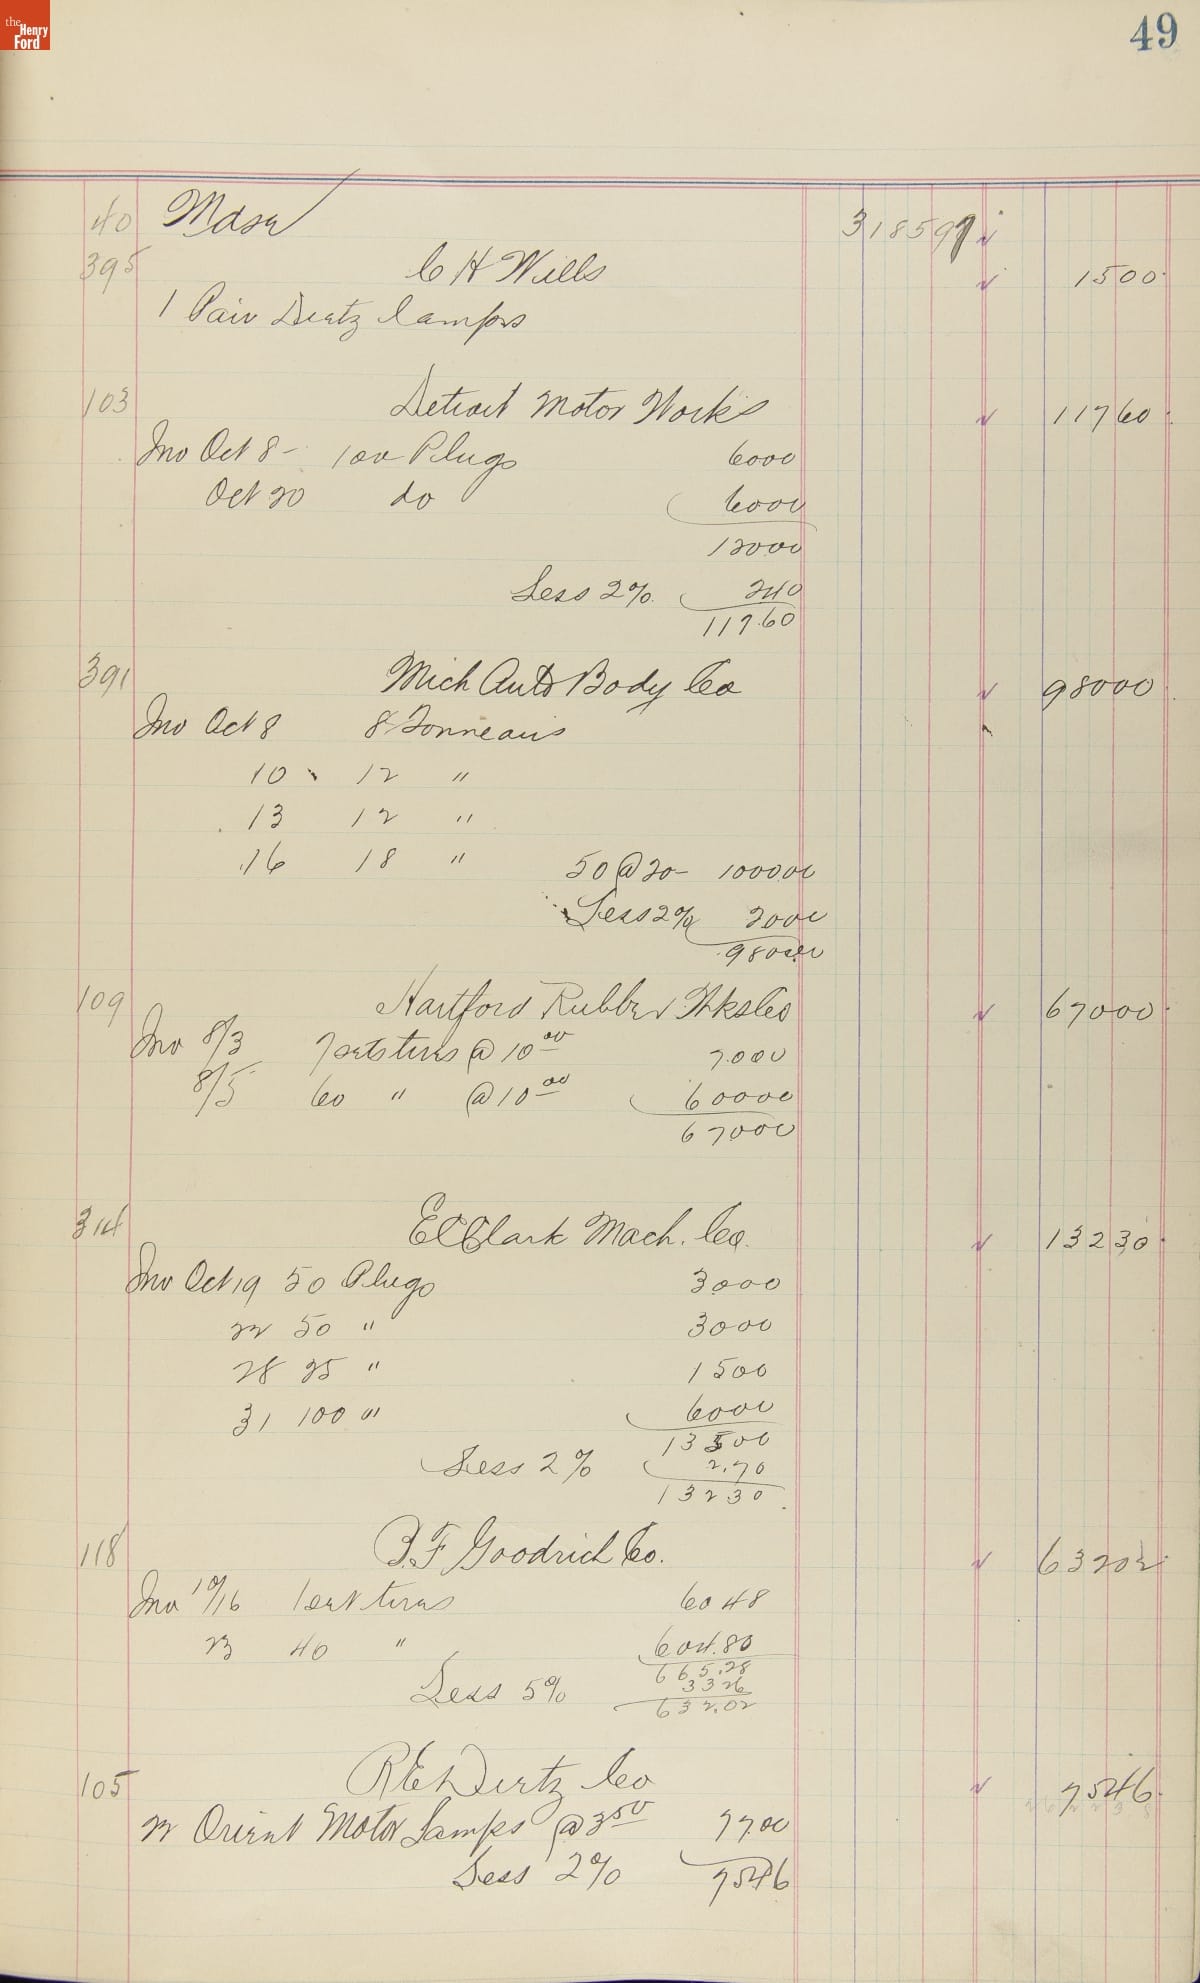 the Henry Ford
49
40 Mdse 318597
395 C H Wills 1500
1 Pair Dietz Lamps
103 Detroit Motor Works 11760
Inv Oct 8 - 100 Plugs 6000
Oct 20 do 6000
12000
Less 2% 240
117.60
391 Mich Auto Body Co 98000
Inv Oct 8 8 Tonneaus
10 12 "
13 12 "
16 18 " 50 @ 20- 100000
Less 2% 2000
98000
109 Hartford Rubber Wks Co 67000
Inv 8/3 7 sets tires @ 10 00 7000
8/5 60 " @ 10 00 60000
67000
314 E C Clark Mach. Co. 13230
Inv Oct 19 50 Plugs 3000
22 50 " 3000
28 25 " 1500
31 100 " 6000
13500
Less 2% 2.70
13230
118 B.F Goodrich Co. 63202
Inv 10/16 1 set tires 6048
23 40 " 604.80
665.28
Less 5% 3326
632.02
105 R E Dietz Co 7546
22 Orient Motor Lamps @ 3 50 77.00
Less 2% 7546